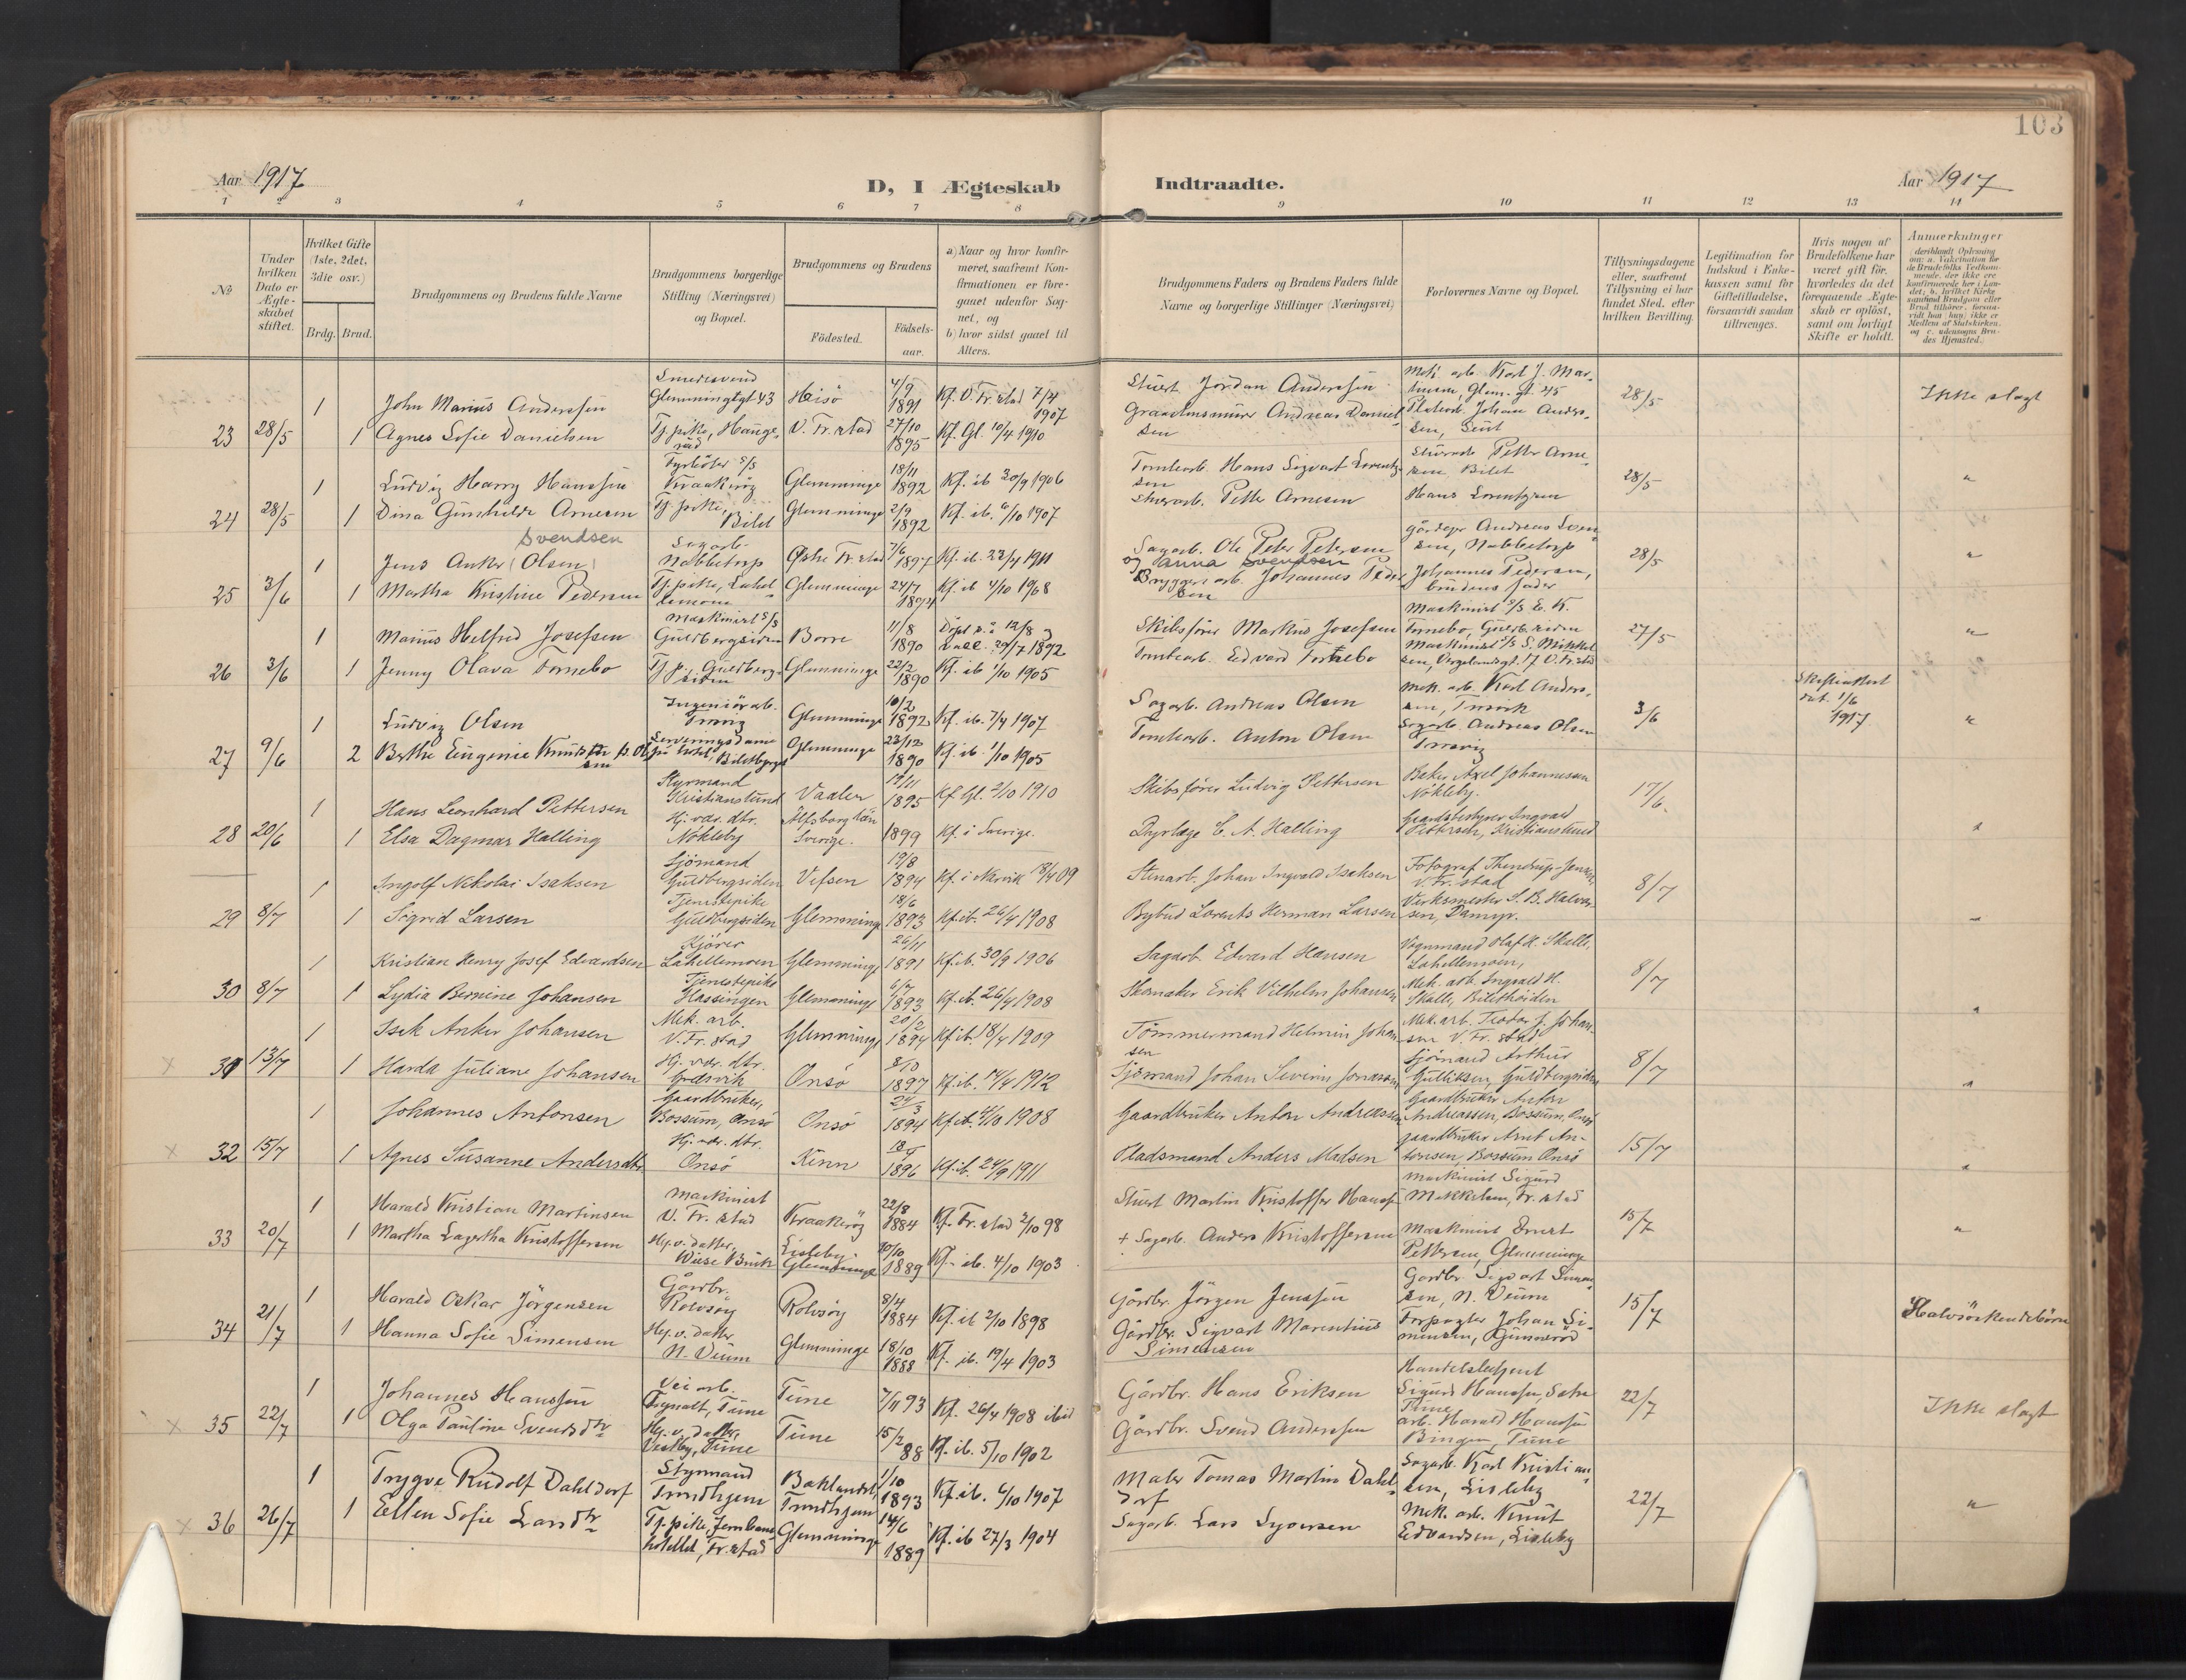 103
Aar 1917
D, I Ægteskab
Indtraadte.
Aar 1917
1 2 3 4 5 6 7 8 9 10 11 12 13 14
No
Under hvilken Dato er Ægteskabet stiftet.
Hvilket Gifte (1ste, 2det, 3die osv.)
Brdg. Brud.
Brudgommens og Brudens fulde Navne
Brudgommens borgerlige Stilling (Næringsvei) og Bopæl.
Brudgommens og Brudens
Födested.
Födsels-aar.
a) Naar og hvor konfirmeret, saafremt Konfirmationen er foregaaet udenfor Sognet, og
b) hvor sidst gaaet til Alters.
Brudgommens Faders og Brudens Faders fulde Navne og borgerlige Stillinger (Næringsvei)
Forlovernes Navne og Bopæl.
Tillysningsdagene eller, saafremt Tillysning ei har fundet Sted, efter hvilken Bevilling.
Legitimation for Indskud i Enkekassen samt for Giftetilladelse, forsaavidt saadan tiltrænges.
Hvis nogen af Brudefolkene har været gift för, hvorledes da det foregaaende Ægteskab er oplöst, samt om lovligt Skifte er holdt.
Anmerkninger
23 28/5
1 John Marius Anderssen Smedesvend Glemmingegt 43 Hisö 4/9 1891 Kf. V. Fr.stad 7/4 1907
Stuert Jördan Anderssen
28/5 Ikke slegt
1 Agnes Sofie Danielsen Tj.pike, Haugeräd V. Fr.stad 27/10 1895 Kf. Gl. 10/4 1910
Andreas Danielsen
Johan Andersen,
24 28/5
1 Ludvig Harry Hanssen Fyrböter S/S Kraakeröy Glemminge 18/11 1892 Kf. ib 30/9 1906
Tomtearb. Hans Sigvart Lorentzsen
Petter Arnesen Bildt
28/5 "
1 Dina Gunhilde Arnesen Tj.pike, Bildt Glemminge 2/9 1892 Kf. ib. 6/10 1907
Petter Arnesen
Hans Lorentzen
25 3/6
Svendsen
1 Jens Anker (Olsen) Sagarb. Nabbetorp Østre Fr.stad 7/6 1897 Kf. ib. 23/4 1911
Sagarb. Ole Peter Petersen og Anna Svendsen
Andreas Svensen, Nabbetorp
28/5 "
1 Martha Kristine Pedersen Tj.pike, Glemminge 24/7 Kf. ib 4/10
Bryggeriarb. Johannes Pedersen
Johannes Pedersen, brudens fader
26 3/6
1 Marius Helfred Josefsen Maskinist S/S Guldbergsiden Borre 11/8 1890
Skibsförer Markus Josefsen
Maskinist S/S E. K. Tornebo, Guldb.siden
27/5 "
1 Jenny Olava Tornebo Tj.p., Guldbergsiden Glemminge 22/2 1890 Kf. ib 1/10 1905
Tomtearb. Edvard Tornebo
Maskinist S/S S. Mikkelsen, V. Fr.stad
27 9/6
1 Ludvig Olsen Ingeniörarb. Glemminge 10/2 1892 Kf. ib. 7/4 1907
Sagarb. Andreas Olsen
Mek. arb. Karl Andersen,
3/6
Skifteattest dat. 1/6 1917 "
2 Berthe Eugenie Knudsen Serveringsdame Glemminge 23/12 1890 Kf. ib. 1/10 1905
Tomtearb. Anton Olsen
Sagarb. Andreas Olsen
28 20/6
1 Hans Leonhard Pettersen Styrmand Kristianslund Vaaler 17/11 1895 Kf. Gl. 2/10 1910
Skibsförer Ludvig Pettersen
Baker Axel Johannesen Nökleby.
17/6.
1 Elsa Dagmar Halling Hj.vær. dtr. Nökleby Älfsborg län Sverige. 1899 Kf. i Sverige.
Dyrlæge C. A. Halling
Gaardsbestyrer Ingvald Pettersen, Kristianslund
"
29 8/7
1 Ingolf Nikolai Isaksen Sjömand Guldbergsiden Vefsen 19/8 1894 Kf. i Narvik 18/4 09
Stenarb. Johan Ingvald Isaksen
Fotograf V. Fr.stad
8/7
1 Sigrid Larsen Tjenestepike Guldbergsiden Glemminge 18/6 1893 Kf. ib. 26/4 1908
Bybud Lorents Herman Larsen
Verksmester S. B. Halvorsen, Damyr.
"
30 8/7
1 Kristian Henry Josef Edvardsen Kjörer Lahellemoen Glemminge 26/11 1891 Kf. ib. 30/9 1906
Sagarb. Edvard Hansen
Vognmand Olaf K. Skalle, Lahellemoen,
8/7
1 Lydia Bernine Johansen Tjenestepike Hassingen Glemminge 6/7 1893 Kf. ib. 26/4 1908
Skomaker Erik Vilhelm Johansen
Mek. arb. Ingvald H. Skalle,
"
31 13/7
1 Isak Anker Johansen Mek. arb. V. Fr.stad Glemminge 20/2 1894 Kf. ib. 18/4 1909
Tömmermand Helmin Johansen
Mek. arb. Teodor J. Johansen V. Fr.stad
8/7
1 Harda Juliane Johansen Hj. vær. dtr. Gresvik Onsö 8/10 1897 Kf. ib. 14/4 1912
Sjömand Johan Severin Jonassen
Sjömand Arthur Gulliksen, Guldbergsiden
"
32 15/7
1 Johannes Antonsen Gaardbruker, Bossum, Onsö Onsö 24/3 1894 Kf. ib. 4/10 1908
Gaardbruker Anton Andreassen
Gaardbruker Anton Andreassen, Bossum, Onsö
15/7
1 Agnes Susanne Andersdtr. Hj. vær. dtr. Onsö Kinn 1896 Kf. ib. 24/9 1911
Pladsmand Anders Madsen
Gaardbruker Arnt Antonsen, Bossum Onsö
"
33 20/7
1 Harald Kristian Martinsen Maskinist V. Fr.stad Kraakeröy 22/8 1884 Kf. Fr.stad 2/10 98
Stuert Martin Kristoffer Hanssen
Maskinist Sigurd Mikkelsen, Fr.stad
15/7 "
1 Martha Lagertha Kristoffersen Hj. v. datter, Wiese Bruk Lisleby. Glemminge 10/10 1889 Kf. ib. 4/10 1903
+ Sagarb. Anders Kristoffersen
Maskinist Ernst Pettersen, Glemminge
34 21/7
1 Harald Oskar Jörgensen Gårdbr. Rolvsöy Rolvsöy 8/4 1884 Kf. ib 2/10 1898
Gårdbr. Jörgen Jenssen
Gårdbr. Sigvart Simensen, N. Veum
15/7 Halvsöskendebörn
1 Hanna Sofie Simensen Hj. v. datter, N. Veum Glemminge 18/10 1888 Kf. ib. 19/4 1903
Gårdbr. Sigvart Marentius Simensen
Forpagter Johan Simensen, Gunneröd
35 22/7
1 Johannes Hanssen Veiarb. Tune Tune 7/11 93 Kf. 26/4 1908 ibid
Gårdbr. Hans Eriksen
Handelsbetjent Sigurd Hanssen, Tune
22/7 Ikke slegt
1 Olga Pauline Svendsdtr Hj. v. datter, Vestby, Tune Tune 15/2 88 Kf. ib. 5/10 1902
Gårdbr. Svend Anderssen
arb. Harald Hanssen Bingen, Tune
36 26/7
1 Trygve Rudolf Dahldorf Styrmand Trondhjem Baklandet, Trondhjem 1/10 1893 Kf. ib. 6/10 1907
Maler Tomas Martin Dahldorf
Sagarb. Karl Kristiansen, Lisleby
22/7 "
1 Ellen Sofie Larsdtr Tj. pike, Jernbanehotellet, Fr.stad Glemminge 14/6 1889 Kf. ib 27/3 1904
Sagarb. Lars Syversen
Mek. arb. Knut Edvardsen, Lisleby